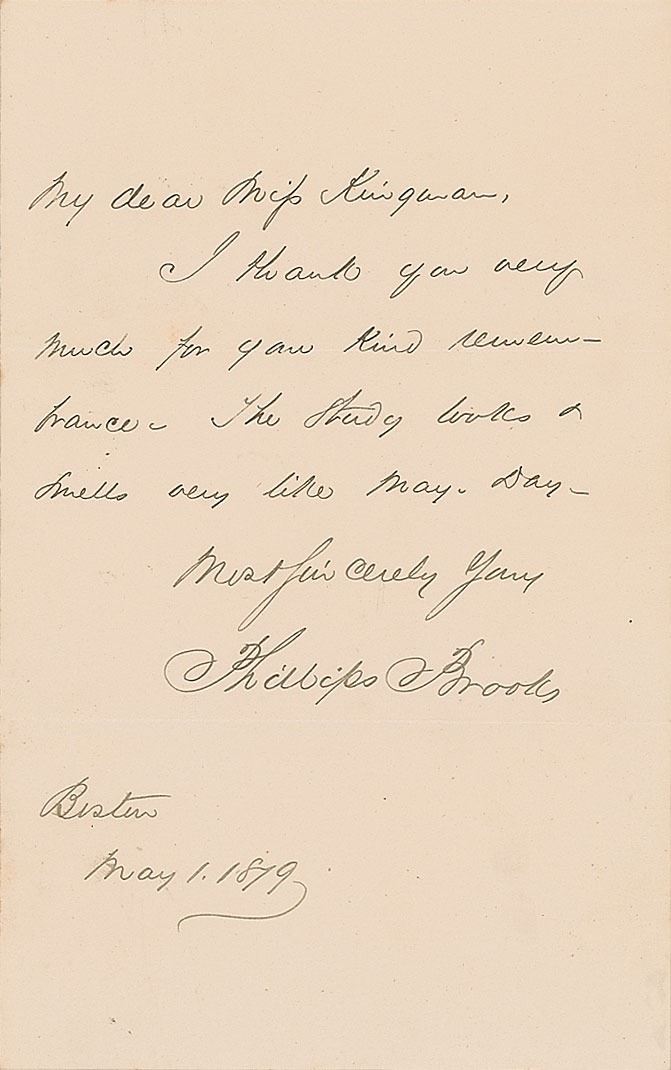 My dear Miss Kingman,
I thank you very
much for your kind remem-
brance - The Study looks &
smells very like May. Day -
Most sincerely Yours
Phillips Brooks
Boston
May 1. 1879